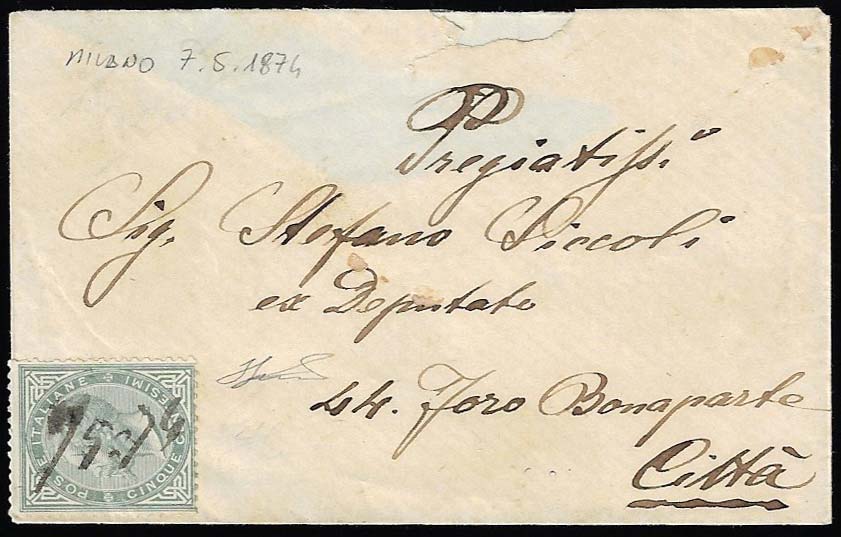 MILANO 7.5.1874
Pregiatiss.º
Sig. Stefano Piccoli
ex Deputato
44. Foro Bonaparte
Città
POSTE ITALIANE
CINQUE CENTESIMI
7 5 74